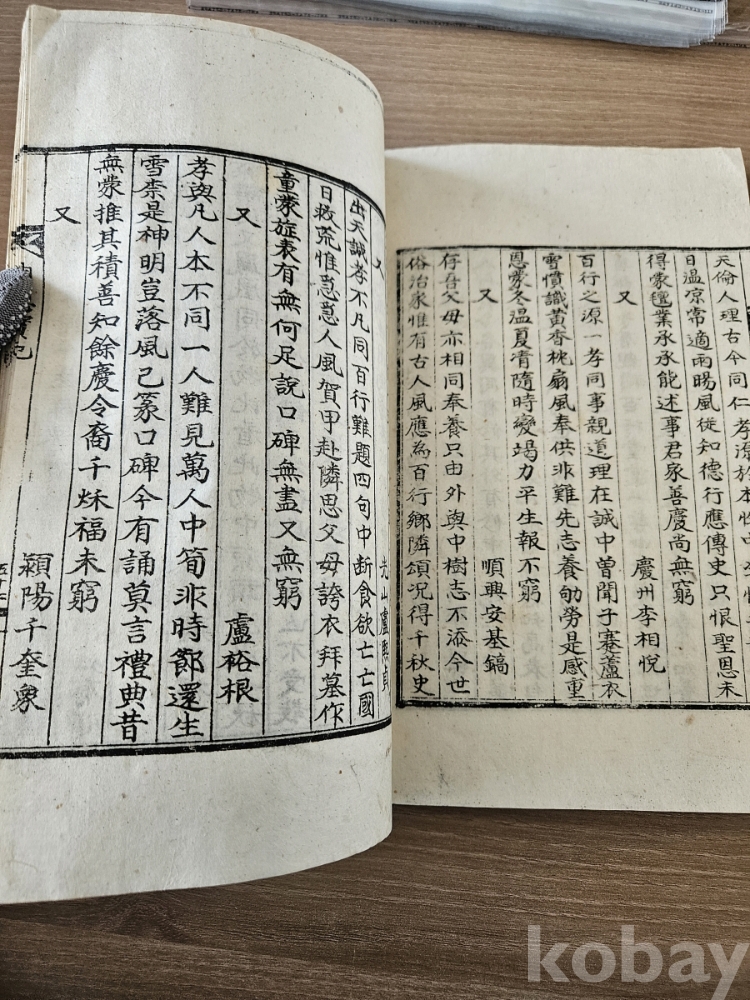 天倫人理古今同仁孝源於本性中
日溫凉常適雨暘風從知德行應傳史只恨聖恩未
得蒙還業承承能述事君家善慶尚無窮
又
慶州李相悅
百行之源一孝同事親道理在誠中曾聞子騫蘆衣
雪慣識黃香枕扇風奉供非難先志養劬勞是感重
恩蒙冬溫夏凊隨時變竭力平生報不窮
又
順興安基鎬
存吾父母亦相同奉養只由外與中樹志不添今世
俗治家惟有古人風應為百行鄉隣頌況得千秋史
又
光山盧
出天誠孝不凡同百行難題四句中斷食欲亡亡國
日救荒惟急急人風賀甲赴隣思父母誇衣拜墓作
童蒙旌表有無何足說口碑無盡又無窮
又
盧裕根
孝與凡人本不同一人難見萬人中筍非時節還生
雪柰是神明豈落風已篆口碑今有誦莫言禮典昔
無蒙推其積善知餘慶令裔千秌福未窮
又
潁陽千奎象
kobay